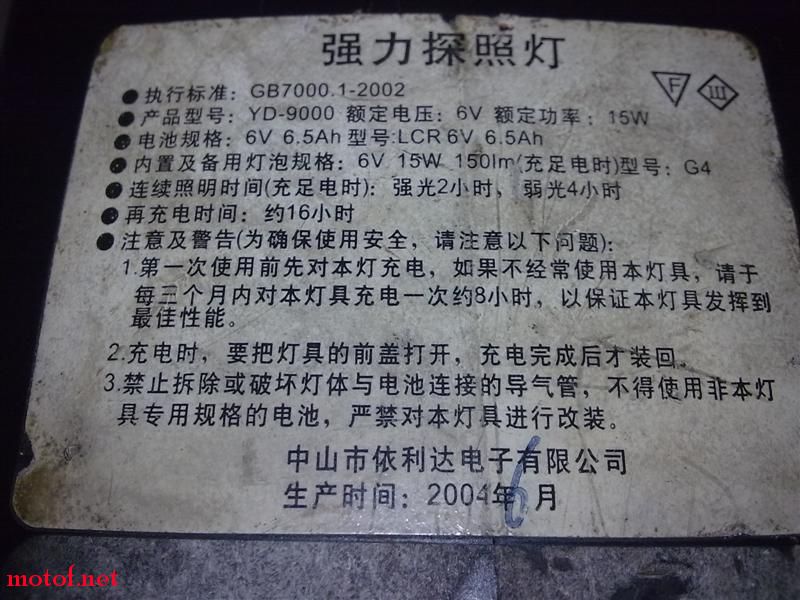 强力探照灯
F
III
●执行标准：GB7000.1-2002
●产品型号：YD-9000 额定电压：6V 额定功率：15W
●电池规格：6V 6.5Ah 型号:LCR 6V 6.5Ah
●内置及备用灯泡规格：6V 15W 150lm(充足电时)型号：G4
●连续照明时间(充足电时)：强光2小时，弱光4小时
●再充电时间：约16小时
●注意及警告(为确保使用安全，请注意以下问题)：
1.第一次使用前先对本灯充电，如果不经常使用本灯具，请于
每三个月内对本灯具充电一次约8小时，以保证本灯具发挥到
最佳性能。
2.充电时，要把灯具的前盖打开，充电完成后才装回。
3.禁止拆除或破坏灯体与电池连接的导气管，不得使用非本灯
具专用规格的电池，严禁对本灯具进行改装。
中山市依利达电子有限公司
生产时间：2004年6月
motof.net